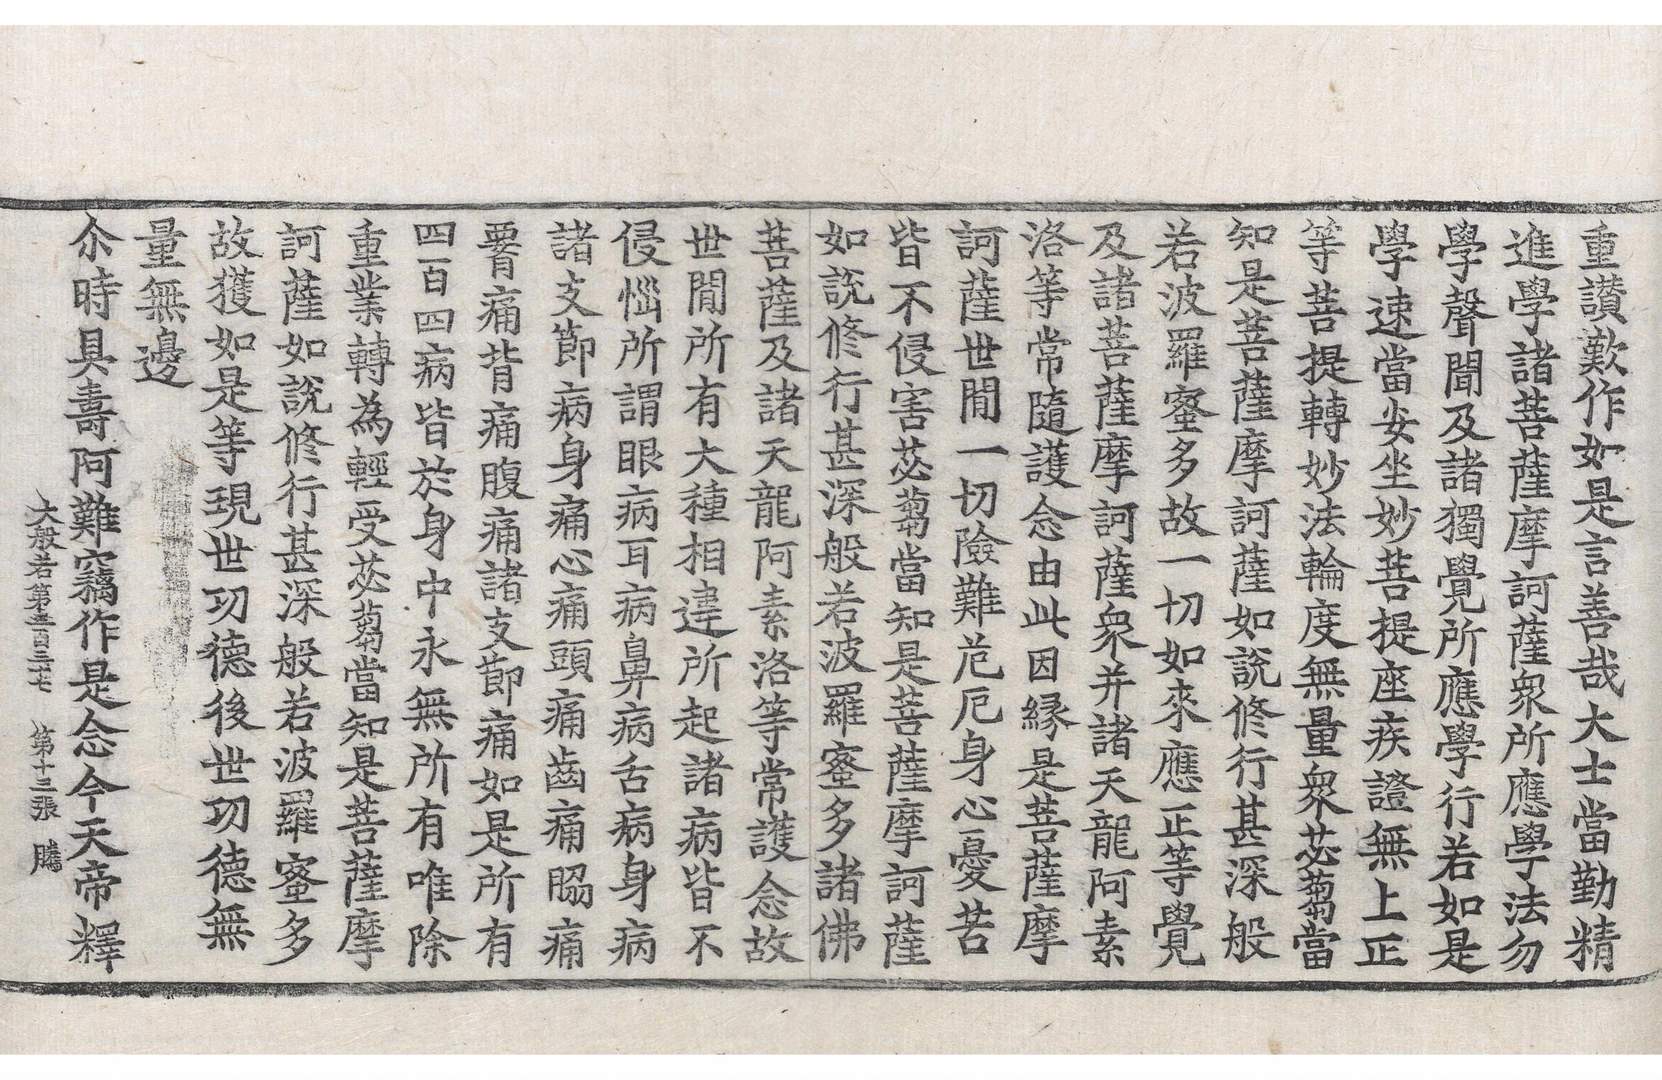 重讃歎作如是言善哉大士當勤精
進學諸菩薩摩訶薩衆所應學法勿
學聲聞及諸獨覺所應學行若如是
學速當安坐妙菩提座疾證無上正
等菩提轉妙法輪度無量衆苾蒭當
知是菩薩摩訶薩如說修行甚深般
若波羅蜜多故一切如來應正等覺
及諸菩薩摩訶薩衆并諸天龍阿素
洛等常隨護念由此因緣是菩薩摩
訶薩世閒一切險難危厄身心憂苦
皆不侵害苾蒭當知是菩薩摩訶薩
如說修行甚深般若波羅蜜多諸佛
菩薩及諸天龍阿素洛等常護念故
世閒所有大種相違所起諸病皆不
侵惱所謂眼病耳病鼻病舌病身病
諸支節病身痛心痛頭痛齒痛脇痛
𦝫痛背痛腹痛諸支節痛如是所有
四百四病皆於身中永無所有唯除
重業轉為輕受苾蒭當知是菩薩摩
訶薩如說修行甚深般若波羅蜜多
故獲如是等現世功德後世功德無
量無邊
尒時具壽阿難竊作是念今天帝釋
大般若第五百三十七　第十三張　騰